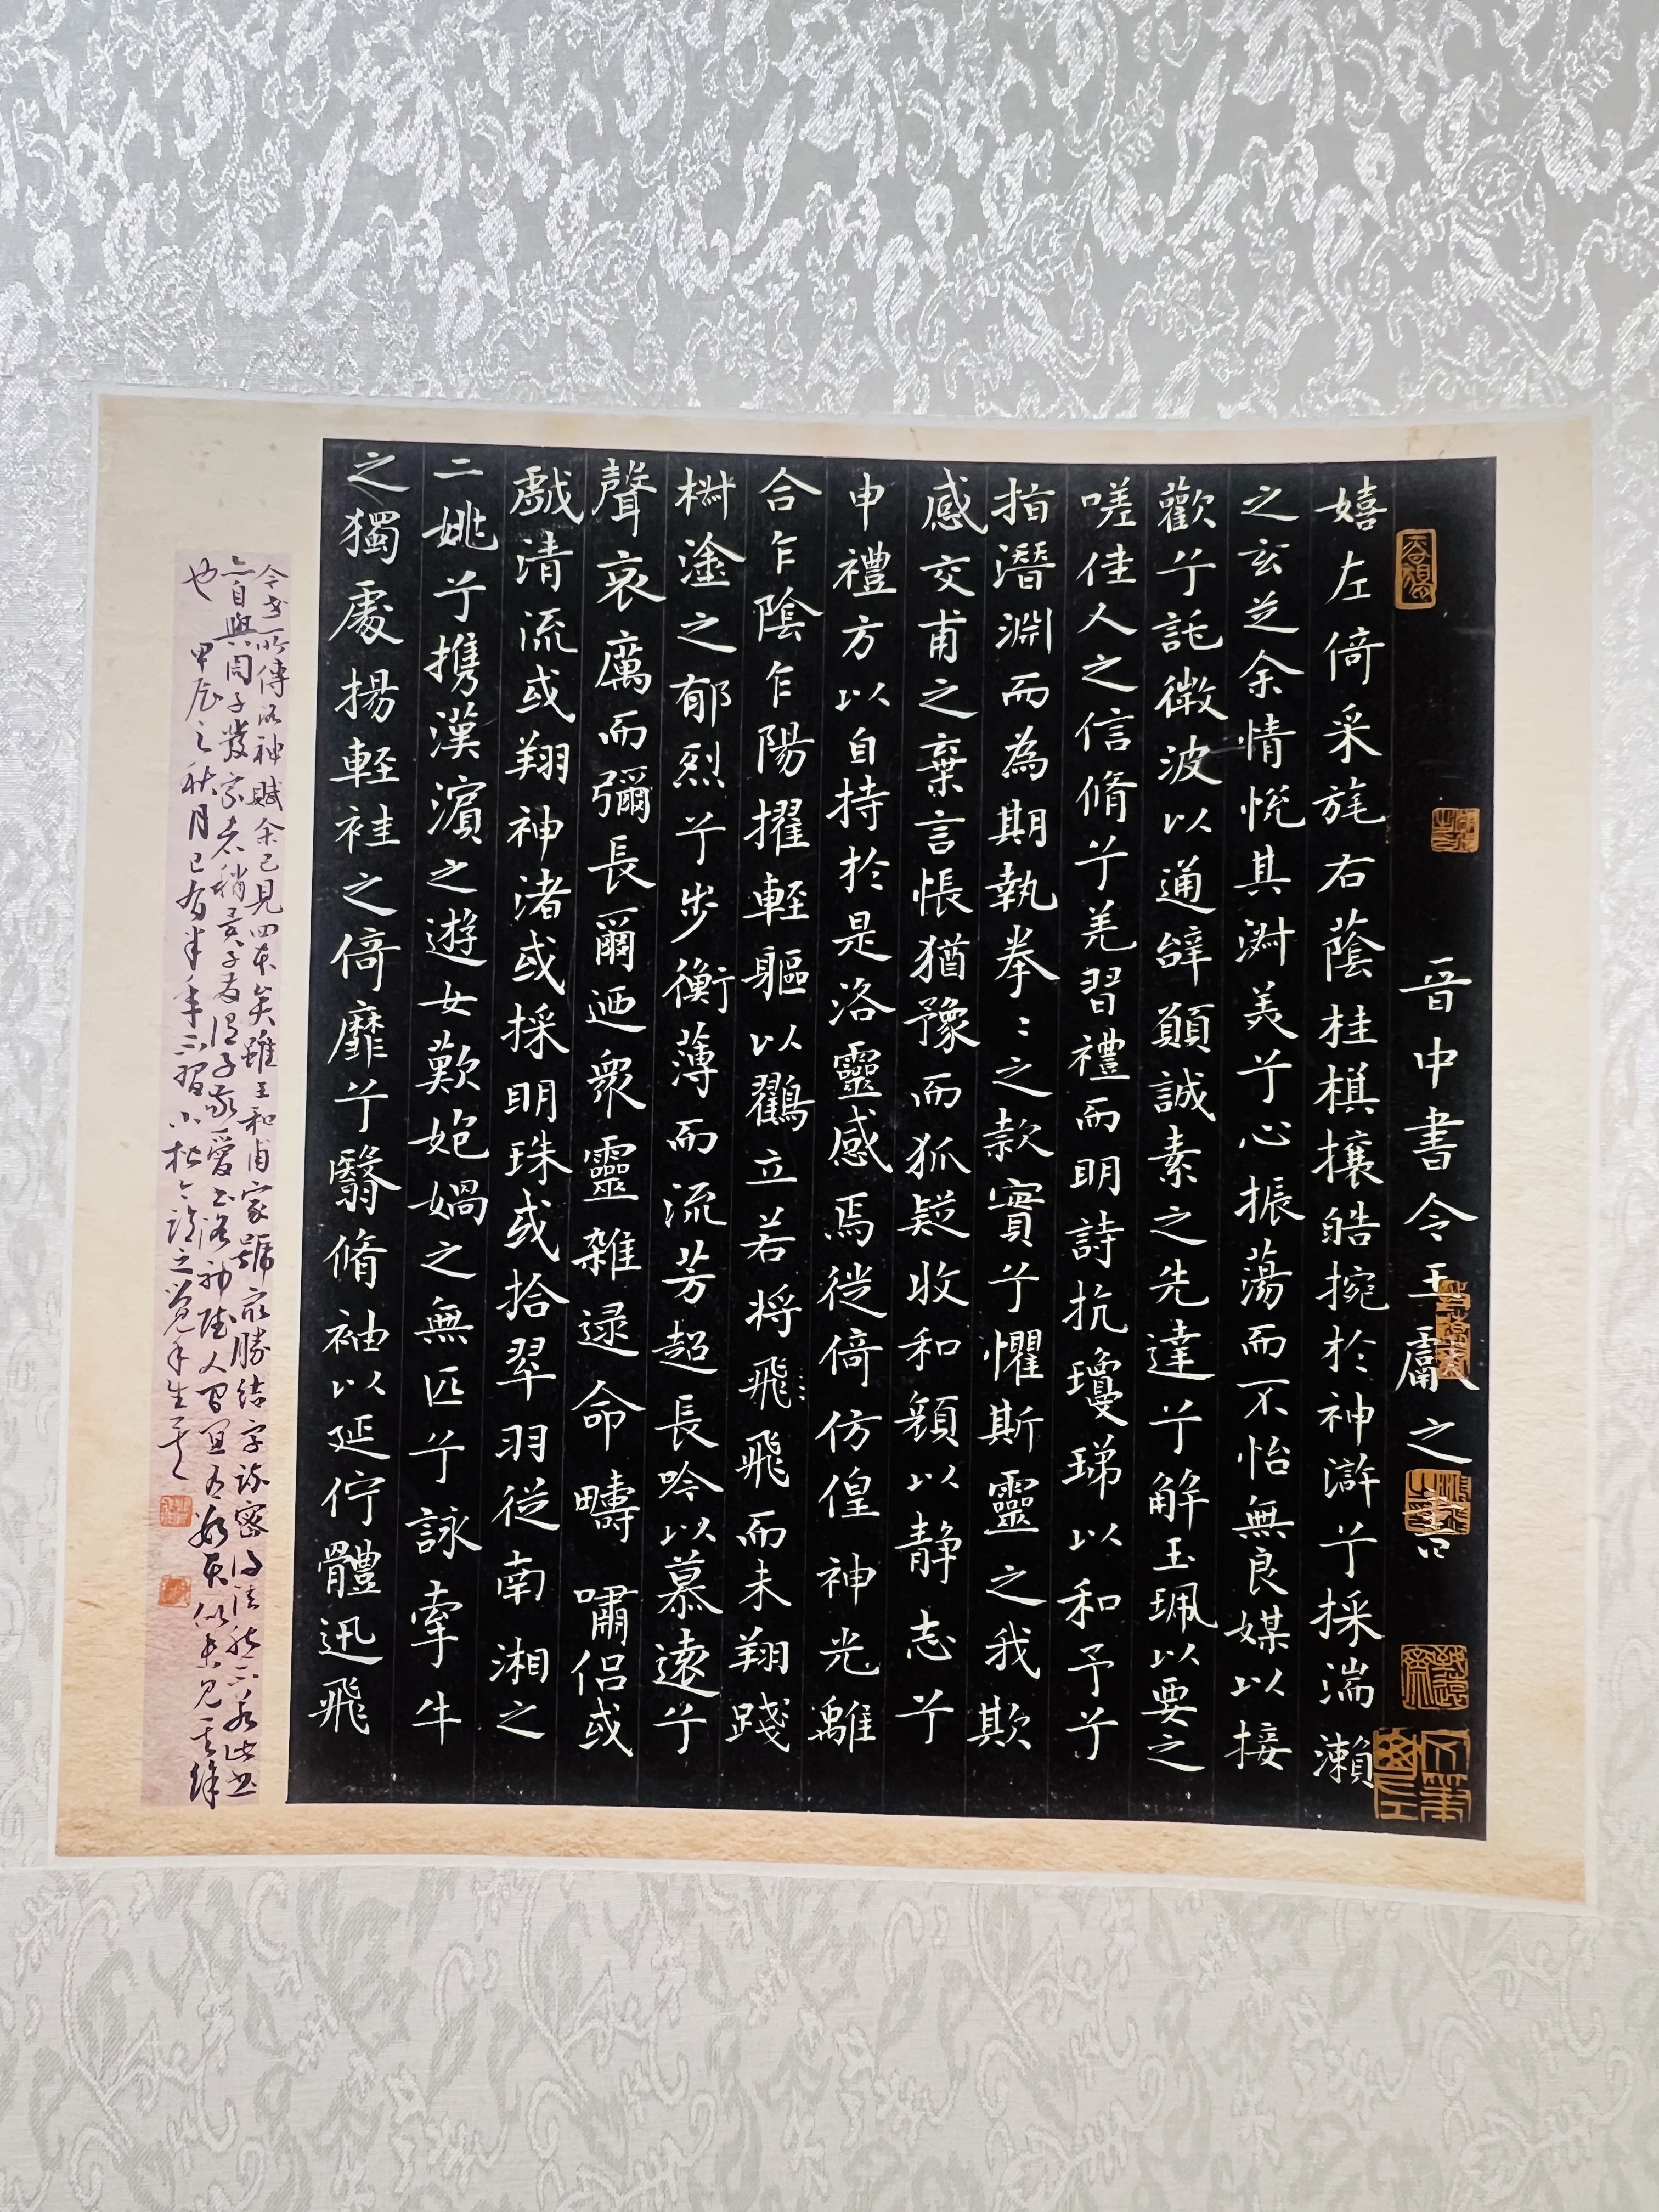 晉中書令王獻之書
嬉左倚采旄右蔭桂棋攘皓捥於神滸兮採湍瀨
之玄芝余情悅其淑美兮心振蕩而不怡無良媒以接
歡兮託微波以通辭願誠素之先達兮解玉珮以要之
嗟佳人之信脩兮羌習禮而明詩抗瓊珶以和予兮
指潛淵而為期執拳〻之款實兮懼斯靈之我欺
感交甫之棄言悵猶豫而狐疑收和顏以静志兮
申禮方以自持於是洛靈感焉徙倚仿偟神光離
合乍陰乍陽擢輕軀以鸖立若将飛〻飛而未翔踐
椒塗之郁烈兮步衡薄而流芳超長吟以慕遠兮
聲哀厲而彌長爾迺衆靈雜遝命疇嘯侣或
戲清流或翔神渚或採明珠或拾翠羽從南湘之
二姚兮携漢濱之遊女歎匏媧之無匹兮詠牽牛
之獨處揚輕袿之倚靡兮翳脩袖以延佇體迅飛
今世所傳洛神賦余已見四本矣雖王和甫家號最勝結字疎密得法然不若此書
亦自與周子發家者稍異子发得子敬愛書洛神賦人間宜有數本似未見其餘
也 甲辰之秋月